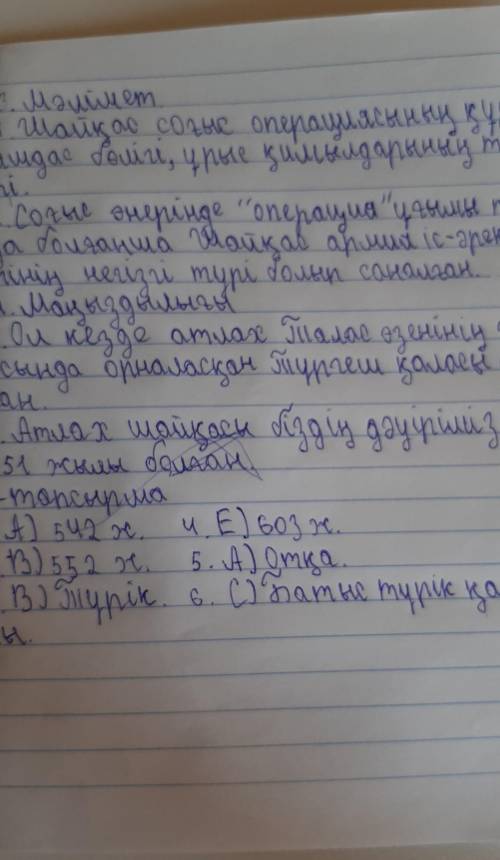 Мәлімет
Шайқас соғыс операциясының құр
амдас бөлігі, ұрыс қимылдарының т
рі.
Соғыс өнерінде "операция" ұғымы п
да болғанша Шайқас армия іс-әрек
інің негізгі түрі болып саналған.
Маңыздылығы
Ол кезде атлах Талас өзенінің
сында орналасқан Түргеш қаласы
ан.
Атлах шайқасы біздің дәуіріміз
51 жылы болған.
-тапсырма
А) 542 ж. 4. Е) 603 ж.
В) 552 ж. 5. А) Отқа.
В) Түрік. 6. С) Батыс түрік қа
ы.